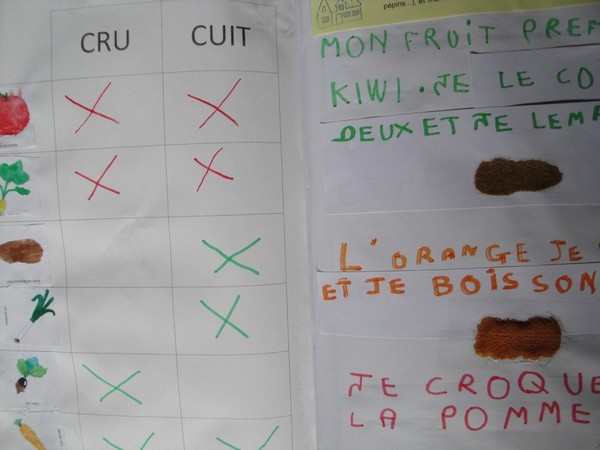 CRU CUIT
pépins...), et
MON FRUIT
KIWI. JE LE
DEUX ET JE
L'ORANGE JE
ET JE BOISSON
JE CROQUE
LA POMME